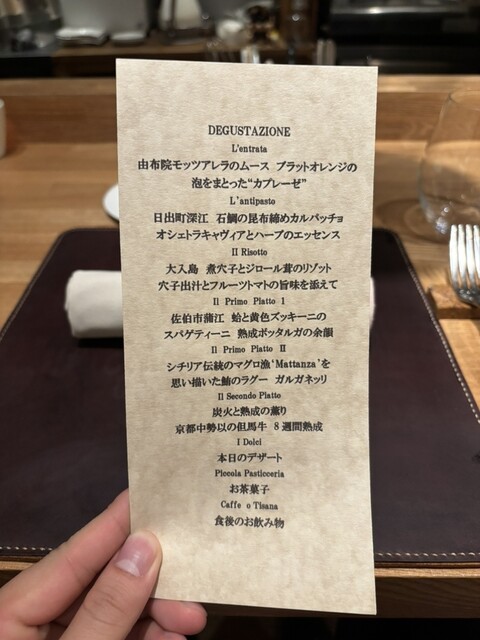 DEGUSTAZIONE
L'entrata
由布院モッツアレラのムース ブラットオレンジの
泡をまとった"カプレーゼ"
L'antipasto
日出町深江 石鯛の昆布締めカルパッチョ
オシェトラキャヴィアとハーブのエッセンス
Il Risotto
大入島 煮穴子とジロール茸のリゾット
穴子出汁とフルーツトマトの旨味を添えて
Il Primo Piatto 1
佐伯市蒲江 蛤と黄色ズッキーニの
スパゲティーニ 熟成ボッタルガの余韻
Il Primo Piatto Ⅱ
シチリア伝統のマグロ漁'Mattanza'を
思い描いた鮪のラグー ガルガネッリ
Il Secondo Piatto
炭火と熟成の薫り
京都中勢以の但馬牛 8週間熟成
I Dolci
本日のデザート
Piccola Pasticceria
お茶菓子
Caffe o Tisana
食後のお飲み物